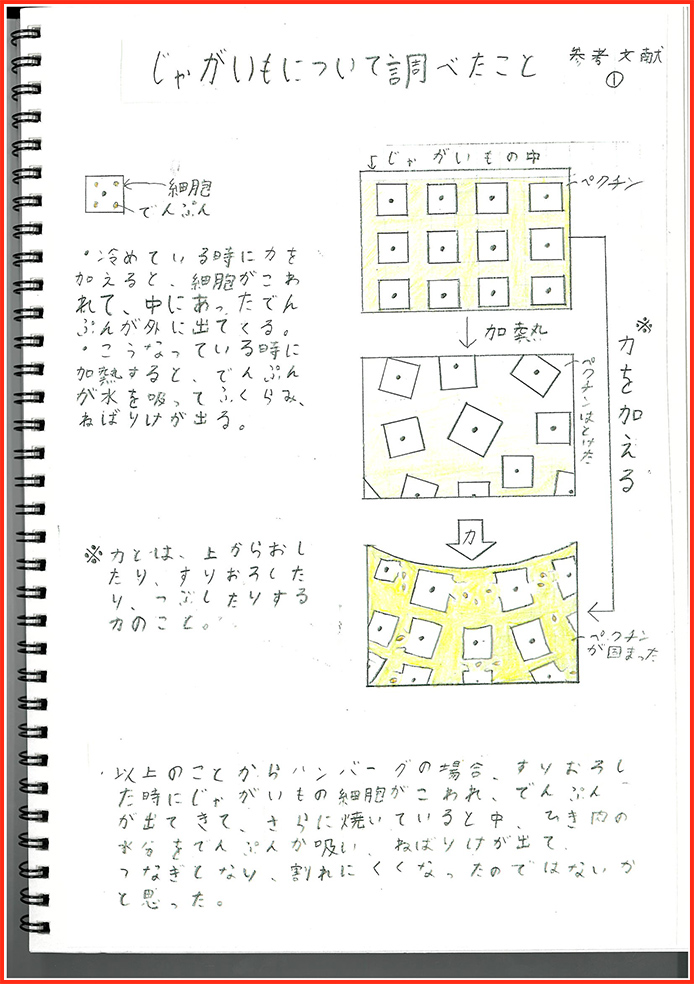 じゃがいもについて調べたこと
参考文献
①
細胞
でんぷん
・冷めている時に力を
加えると、細胞がこわ
れて、中にあったでん
ぷんが外に出てくる。
・こうなっている時に
加熱すると、でんぷん
が水を吸ってふくらみ、
ねばりけが出る。
※力とは、上からおし
たり、すりおろした
り、つぶしたりする
力のこと。
じゃがいもの中
ペクチン
加熱
ペクチンはとけた
力
ペクチン
が固まった
※力を加える
・以上のことからハンバーグの場合、すりおろし
た時にじゃがいもの細胞がこわれ、でんぷん
が出てきて、さらに焼いていると中、ひき肉の
水分をでんぷんが吸い、ねばりけが出て、
つなぎとなり、割れにくくなったのではないか
と思った。